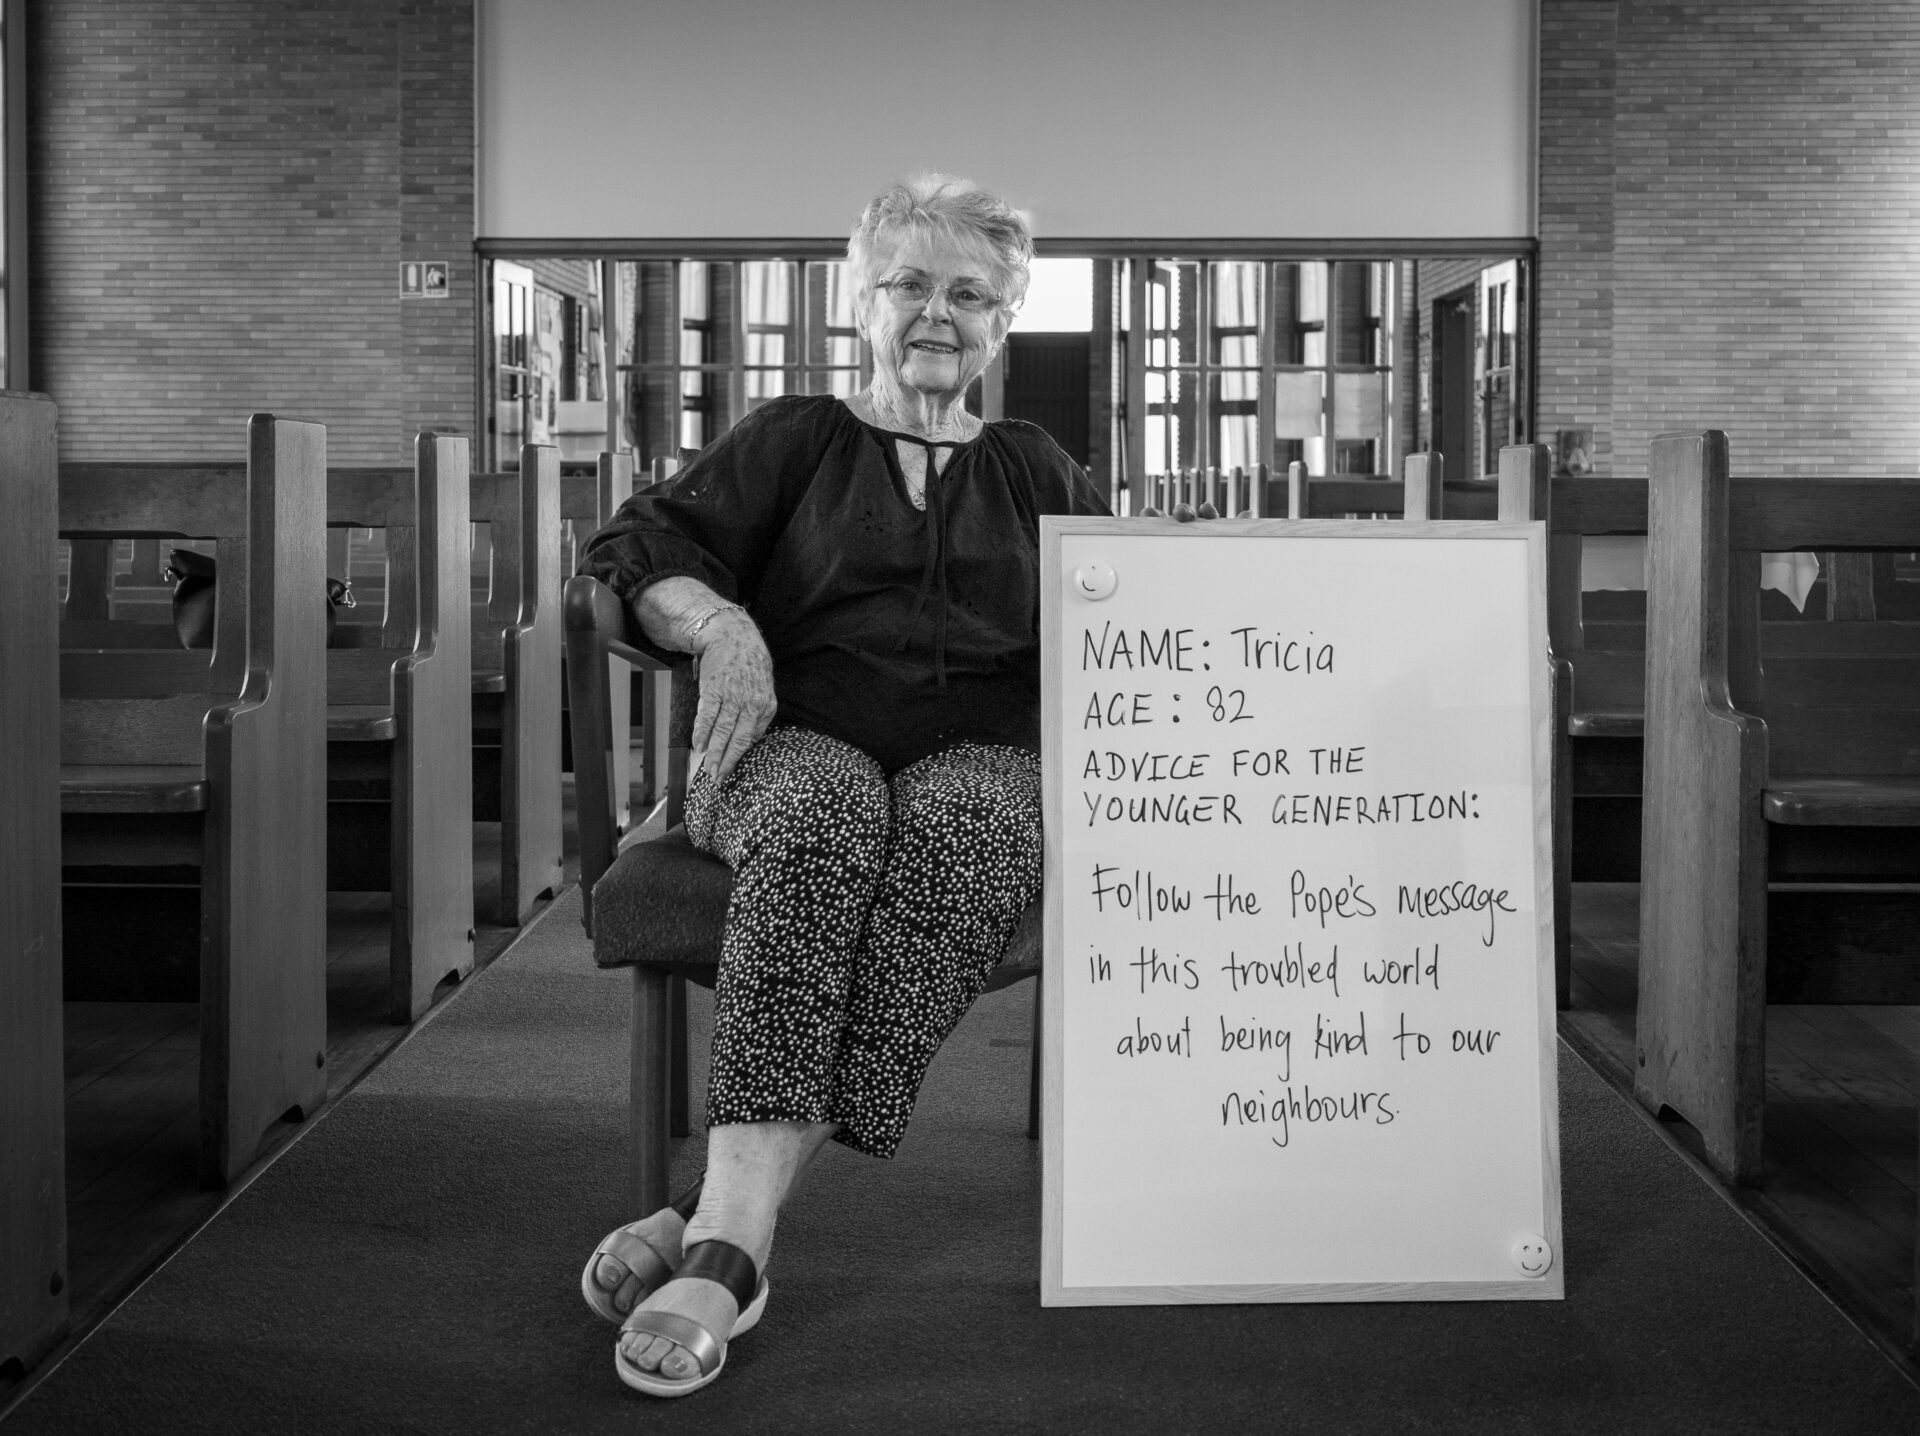 NAME: Tricia
AGE: 82
ADVICE FOR THE
YOUNGER GENERATION:
Follow the Pope's message
in this troubled world
about being kind to our
neighbours.